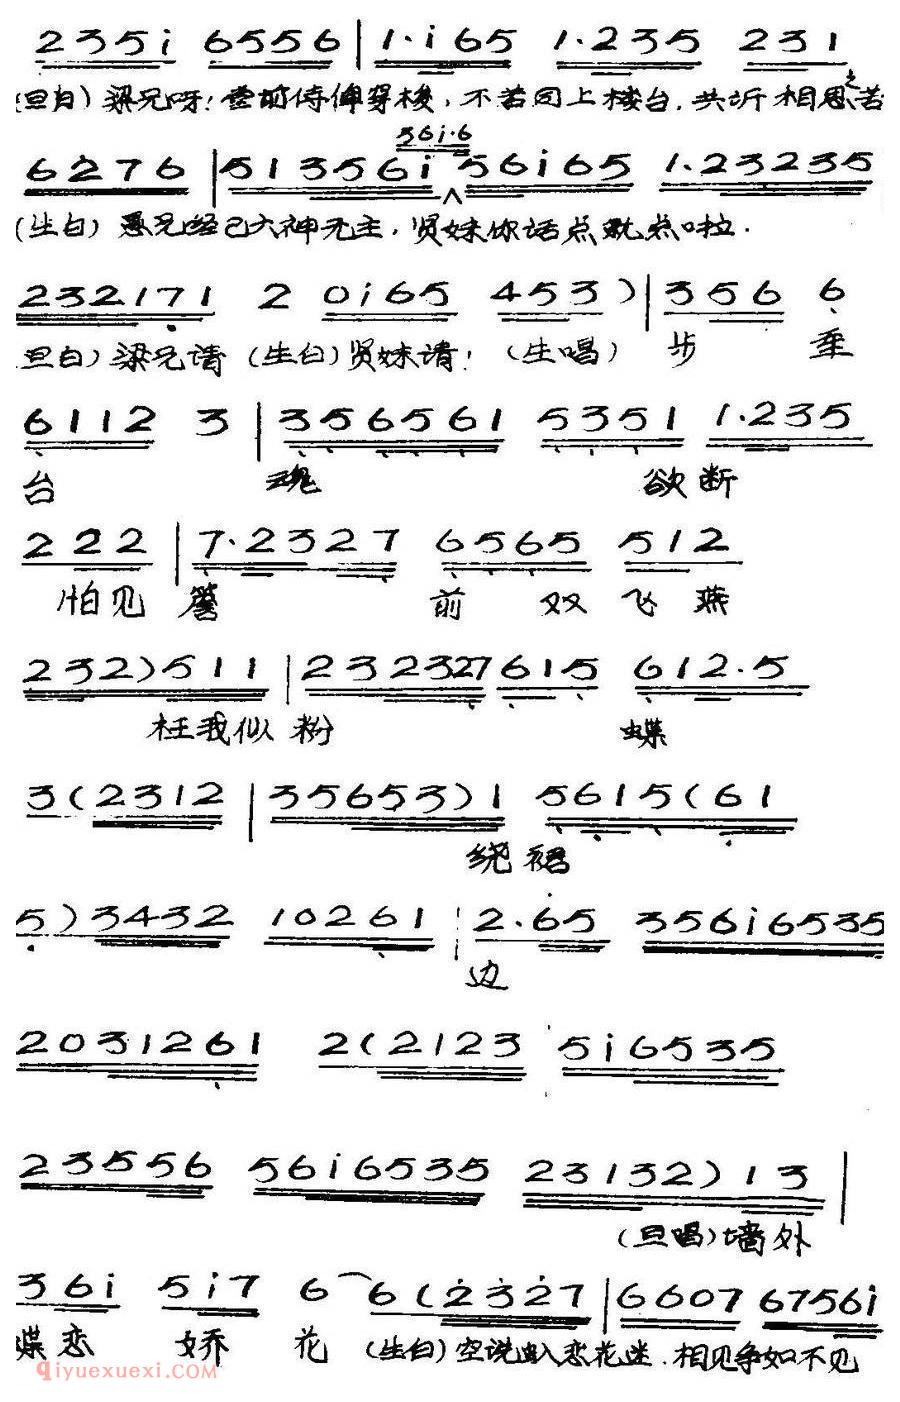 2 3 5 i 6 5 5 6 | 1· i 6 5 1· 2 3 5 2 3 1
旦白）梁兄呀！堂前侍婢穿梭，不若同上楼台，共诉相思之苦
5 6 i· 6
6 2 7 6 | 5 1 3 5 6 i 5 6 i 6 5 1· 2 3 2 3 5
（生白）愚兄经已六神无主，贤妹你话点就点啦．
2 3 2 1 7 1 2 0 i 6 5 4 5 3 ）| 3 5 6 6
旦白）梁兄请（生白）贤妹请！（生唱）步 至
6 1 1 2 3 | 3 5 6 5 6 1 5 3 5 1 1· 2 3 5
台 魂 欲断
2 2 2 | 7· 2 3 2 7 6 5 6 5 5 1 2
怕见 簷 前 双 飞 燕
2 3 2 ）5 1 1 | 2 3 2 3 2 7 6 1 5 6 1 2· 5
枉我似 粉 蝶
3（2 3 1 2 | 3 5 6 5 3 ）1 5 6 1 5（6 1
绕 裙
5 ）3 4 3 2 1 0 2 6 1 | 2· 6 5 3 5 6 i 6 5 3 5
边
2 0 3 1 2 6 1 2（2 1 2 3 5 i 6 5 3 5
2 3 5 5 6 5 6 i 6 5 3 5 2 3 1 3 2 ）1 3 |
（旦唱）墙外
3 6 i 5 i 7 6 6（2 3 2 7 | 6 6 0 7 6 7 5 6 i
蝶恋 娇 花 （生白）空说恋花迷．相见争如不见
qiyuexuexi.COM